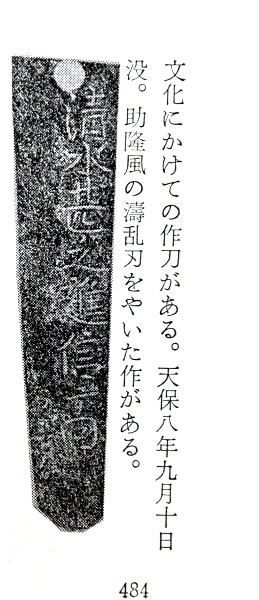 文化にかけての作刀がある。天保八年九月十日
没。助隆風の濤乱刃をやいた作がある。
清水甚之進信高
484